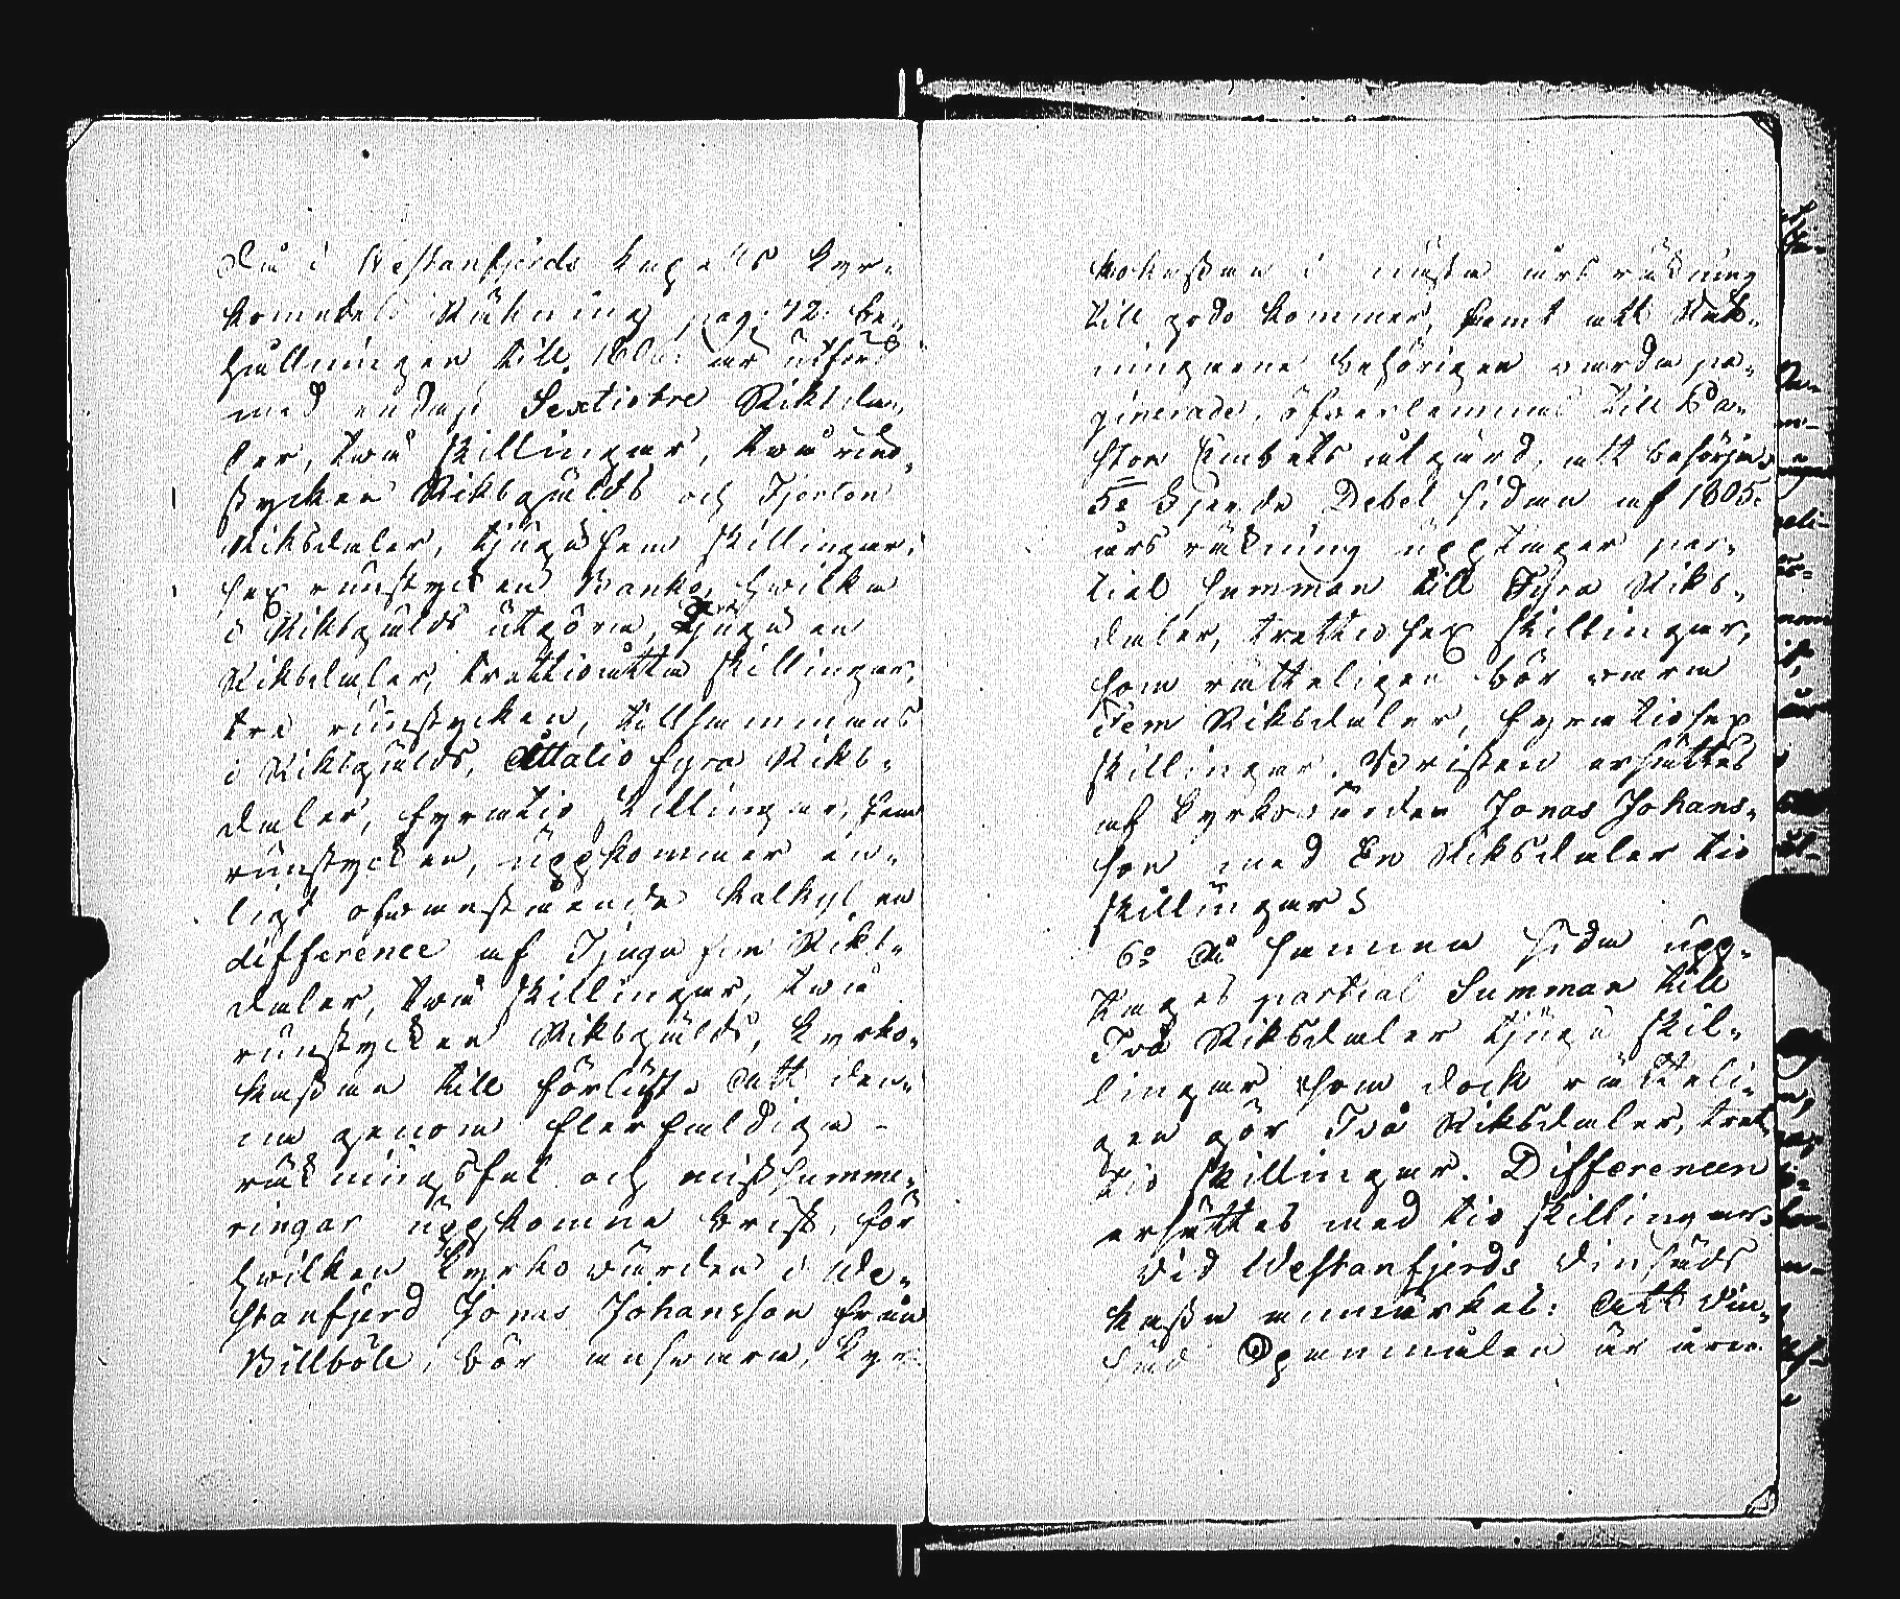 Då i Westanfjerds Capells Kyr-
komedels Räkning pag: 42: be-
hållningen till 180 : är utförd
med endast Sextiotre Riksda-
ler, twå skillingar, twå rund-
stycken Riksgälds och Fjorton
Riksdaler, tjugufem skillingar,
sex runstycken Banko, hwilka
i Riksgälds utgöra, Tjugu en
Riksdaler, trettioåtta skillingar,
tre runstycken, tillsammans
i Riksgälds, Åttatio fyra Riks-
daler, fyratio skillingar, fem
runstycken, uppkommer en-
ligt ofwanstående kalkyl en
difference af Tjugu fem Riks-
daler, twå skillingar, twå
runstycken Riksgälds, kyrko-
kassan till förlust. Att den-
na genom flerfaldiga
räkningsfel och missumme-
ringar uppkomne brist, för
hwilken kyrkowärden i We-
stanfjerd Jonas Johansson från
Billböle, bör answara, kyr-
kokassan i nästa års räkning
till godo kommer, samt att Räk-
ningarne behörigen warda pa-
ginerade, öfwerlemnas till Pa-
stors Embets åtgärd, att behörja.
5o Fjerde Debet sidan af 1805:
års räkning upptager par-
tial summan till Fyra Riks-
daler, trettiosex skillingar,
som rätteligen bör wara
Fem Riksdaler, fyratiosex
skillingar. Bristen ersättes
af kyrkowärden Jonas Johans-
son med En Riksdaler tio
skillingar
6o Å samma sida upp-
tages partial Summan till
Två Riksdaler tjugu skil-
lingar som dock rätteli-
gen gör Två Riksdaler, tret-
tio skillingar. Differencen
ersättes med tio skillingar.
Vid Westanfjerds Vinsäds
kassa anmärkes: Att Vin-
säd Spanmålen är åren